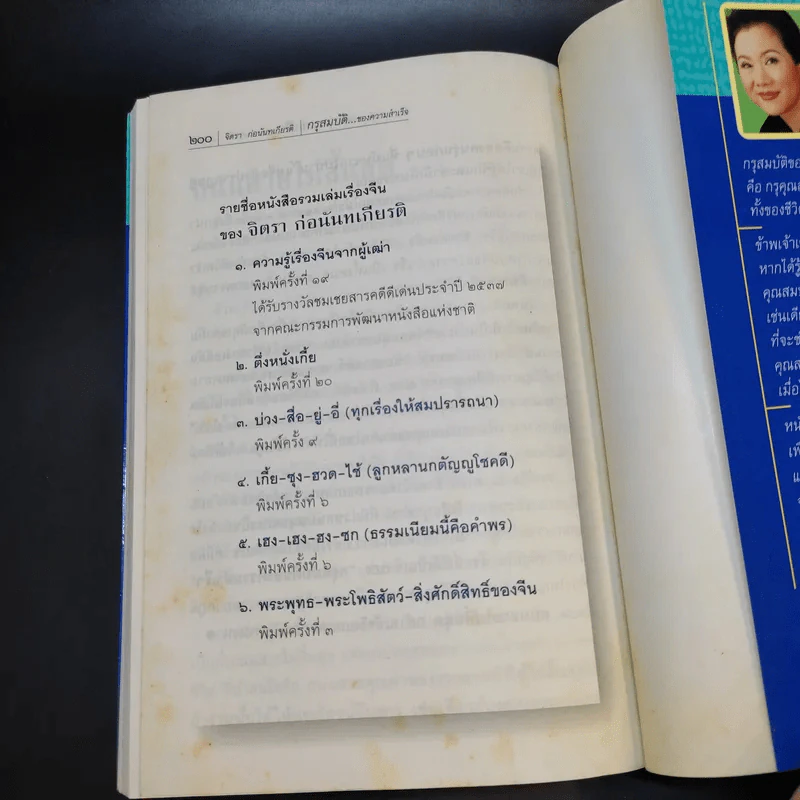 ๒๐๐ | จิตรา ก่อนันทเกียรติ | กรุสมบัติ...ของความสำเร็จ
รายชื่อหนังสือรวมเล่มเรื่องจีน
ของ จิตรา ก่อนันทเกียรติ
๑. ความรู้เรื่องจีนจากผู้เฒ่า
พิมพ์ครั้งที่ ๑๙
ได้รับรางวัลชมเชยสารคดีดีเด่นประจำปี ๒๕๓๗
จากคณะกรรมการพัฒนาหนังสือแห่งชาติ
๒. ตึ่งหนั่งเกี้ย
พิมพ์ครั้งที่ ๒๐
๓. บ่วง-สื่อ-ยู่-อี่ (ทุกเรื่องให้สมปรารถนา)
พิมพ์ครั้ง ๙
๔. เกี้ย-ซุง-ฮวด-ไช้ (ลูกหลานกตัญญูโชคดี)
พิมพ์ครั้งที่ ๖
๕. เฮง-เฮง-ฮง-ซก (ธรรมเนียมนี้คือคำพร)
พิมพ์ครั้งที่ ๖
๖. พระพุทธ-พระโพธิสัตว์-สิ่งศักดิ์สิทธิ์ของจีน
พิมพ์ครั้งที่ ๓
กรุสมบัติขอ
คือ กรุคุณ
ทั้งของชีวิ
ข้าพเจ้า
หากได้รู้
คุณสม
เช่นเดี
ที่จะช
คุณส
เมื่อ
หนั
เพี
แ